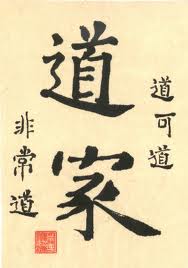 道可道
道家
非常道